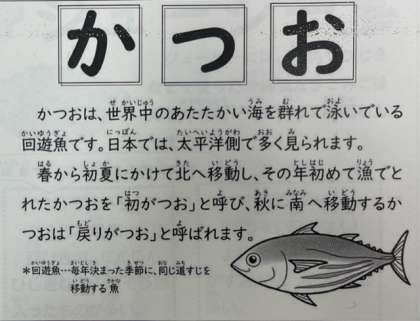 かつお
かつおは、世界中のあたたかい海を群れで泳いでいる
回遊魚です。日本では、太平洋側で多く見られます。
春から初夏にかけて北へ移動し、その年初めて漁でと
れたかつおを「初がつお」と呼び、秋に南へ移動するか
つおは「戻りがつお」と呼ばれます。
*回遊魚…毎年決まった季節に、同じ道すじを
移動する魚